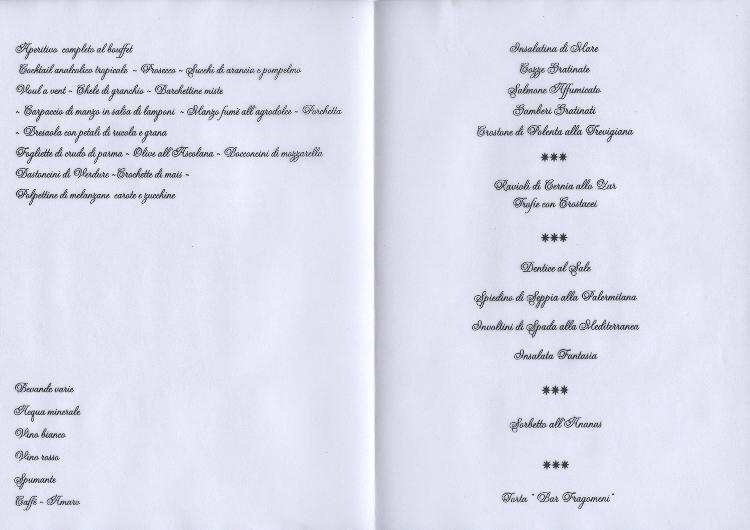 Aperitivo completo al bouffet
Cocktail analcolico tropicale ~ Prosecco ~ Succhi di arancia e pompelmo
Voul a vent ~ Chele di granchio ~ Barchettine miste
~ Carpaccio di manzo in salsa di lamponi ~ Manzo fumè all'agrodolce ~ Porchetta
~ Bresaola con petali di rucola e grana
Fogliette di crudo di parma ~ Olive all'Ascolana ~ Bocconcini di mozzarella
Bastoncini di Verdure ~Crochette di mais ~
Polpettine di melanzane carote e zucchine
Bevande varie
Acqua minerale
Vino bianco
Vino rosso
Spumante
Caffé ~ Amaro
Insalatina di Mare
Cozze Gratinate
Salmone Affumicato
Gamberi Gratinati
Crostone di Polenta alla Trevigiana
***
Ravioli di Cernia allo Zar
Trofie con Crostacei
***
Dentice al Sale
Spiedino di Seppia alla Palermitana
Involtini di Spada alla Mediterranea
Insalata Fantasia
***
Sorbetto all'Ananas
***
Torta " Bar Fragomeni"